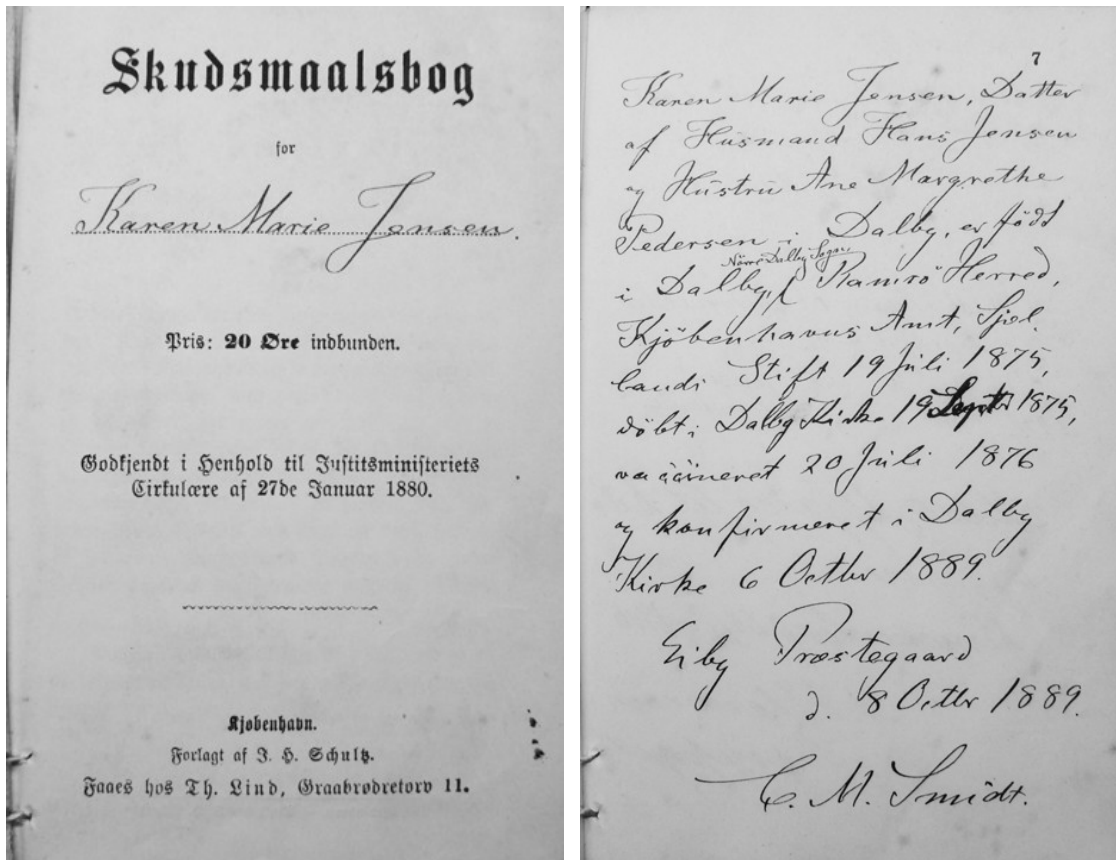 Skudsmaalsbog
for
Karen Marie Jensen.
Pris: 20 Øre indbunden.
Godkjendt i Henhold til Justitsministeriets
Cirkulære af 27de Januar 1880.
Kjøbenhavn.
Forlagt af J. H. Schultz.
Faaes hos Th. Lind, Graabrødretorv 11.
7
Karen Marie Jensen, Datter
af Husmand Hans Jensen
og Hustru Ane Margrethe
Pedersen i Dalby, er födt
Nörre Dalby Sogn,
i Dalby, Ramsö Herred,
Kjöbenhavns Amt, Sjel.
lands Stift 19 Juli 1875,
döbt i Dalby Kirke 19 Septbr 1875,
vaccineret 20 Juli 1876
og konfirmeret i Dalby
Kirke 6 Octbr 1889.
Eiby Præstegaard
d. 8 Octbr 1889.
C. M. Smidt.